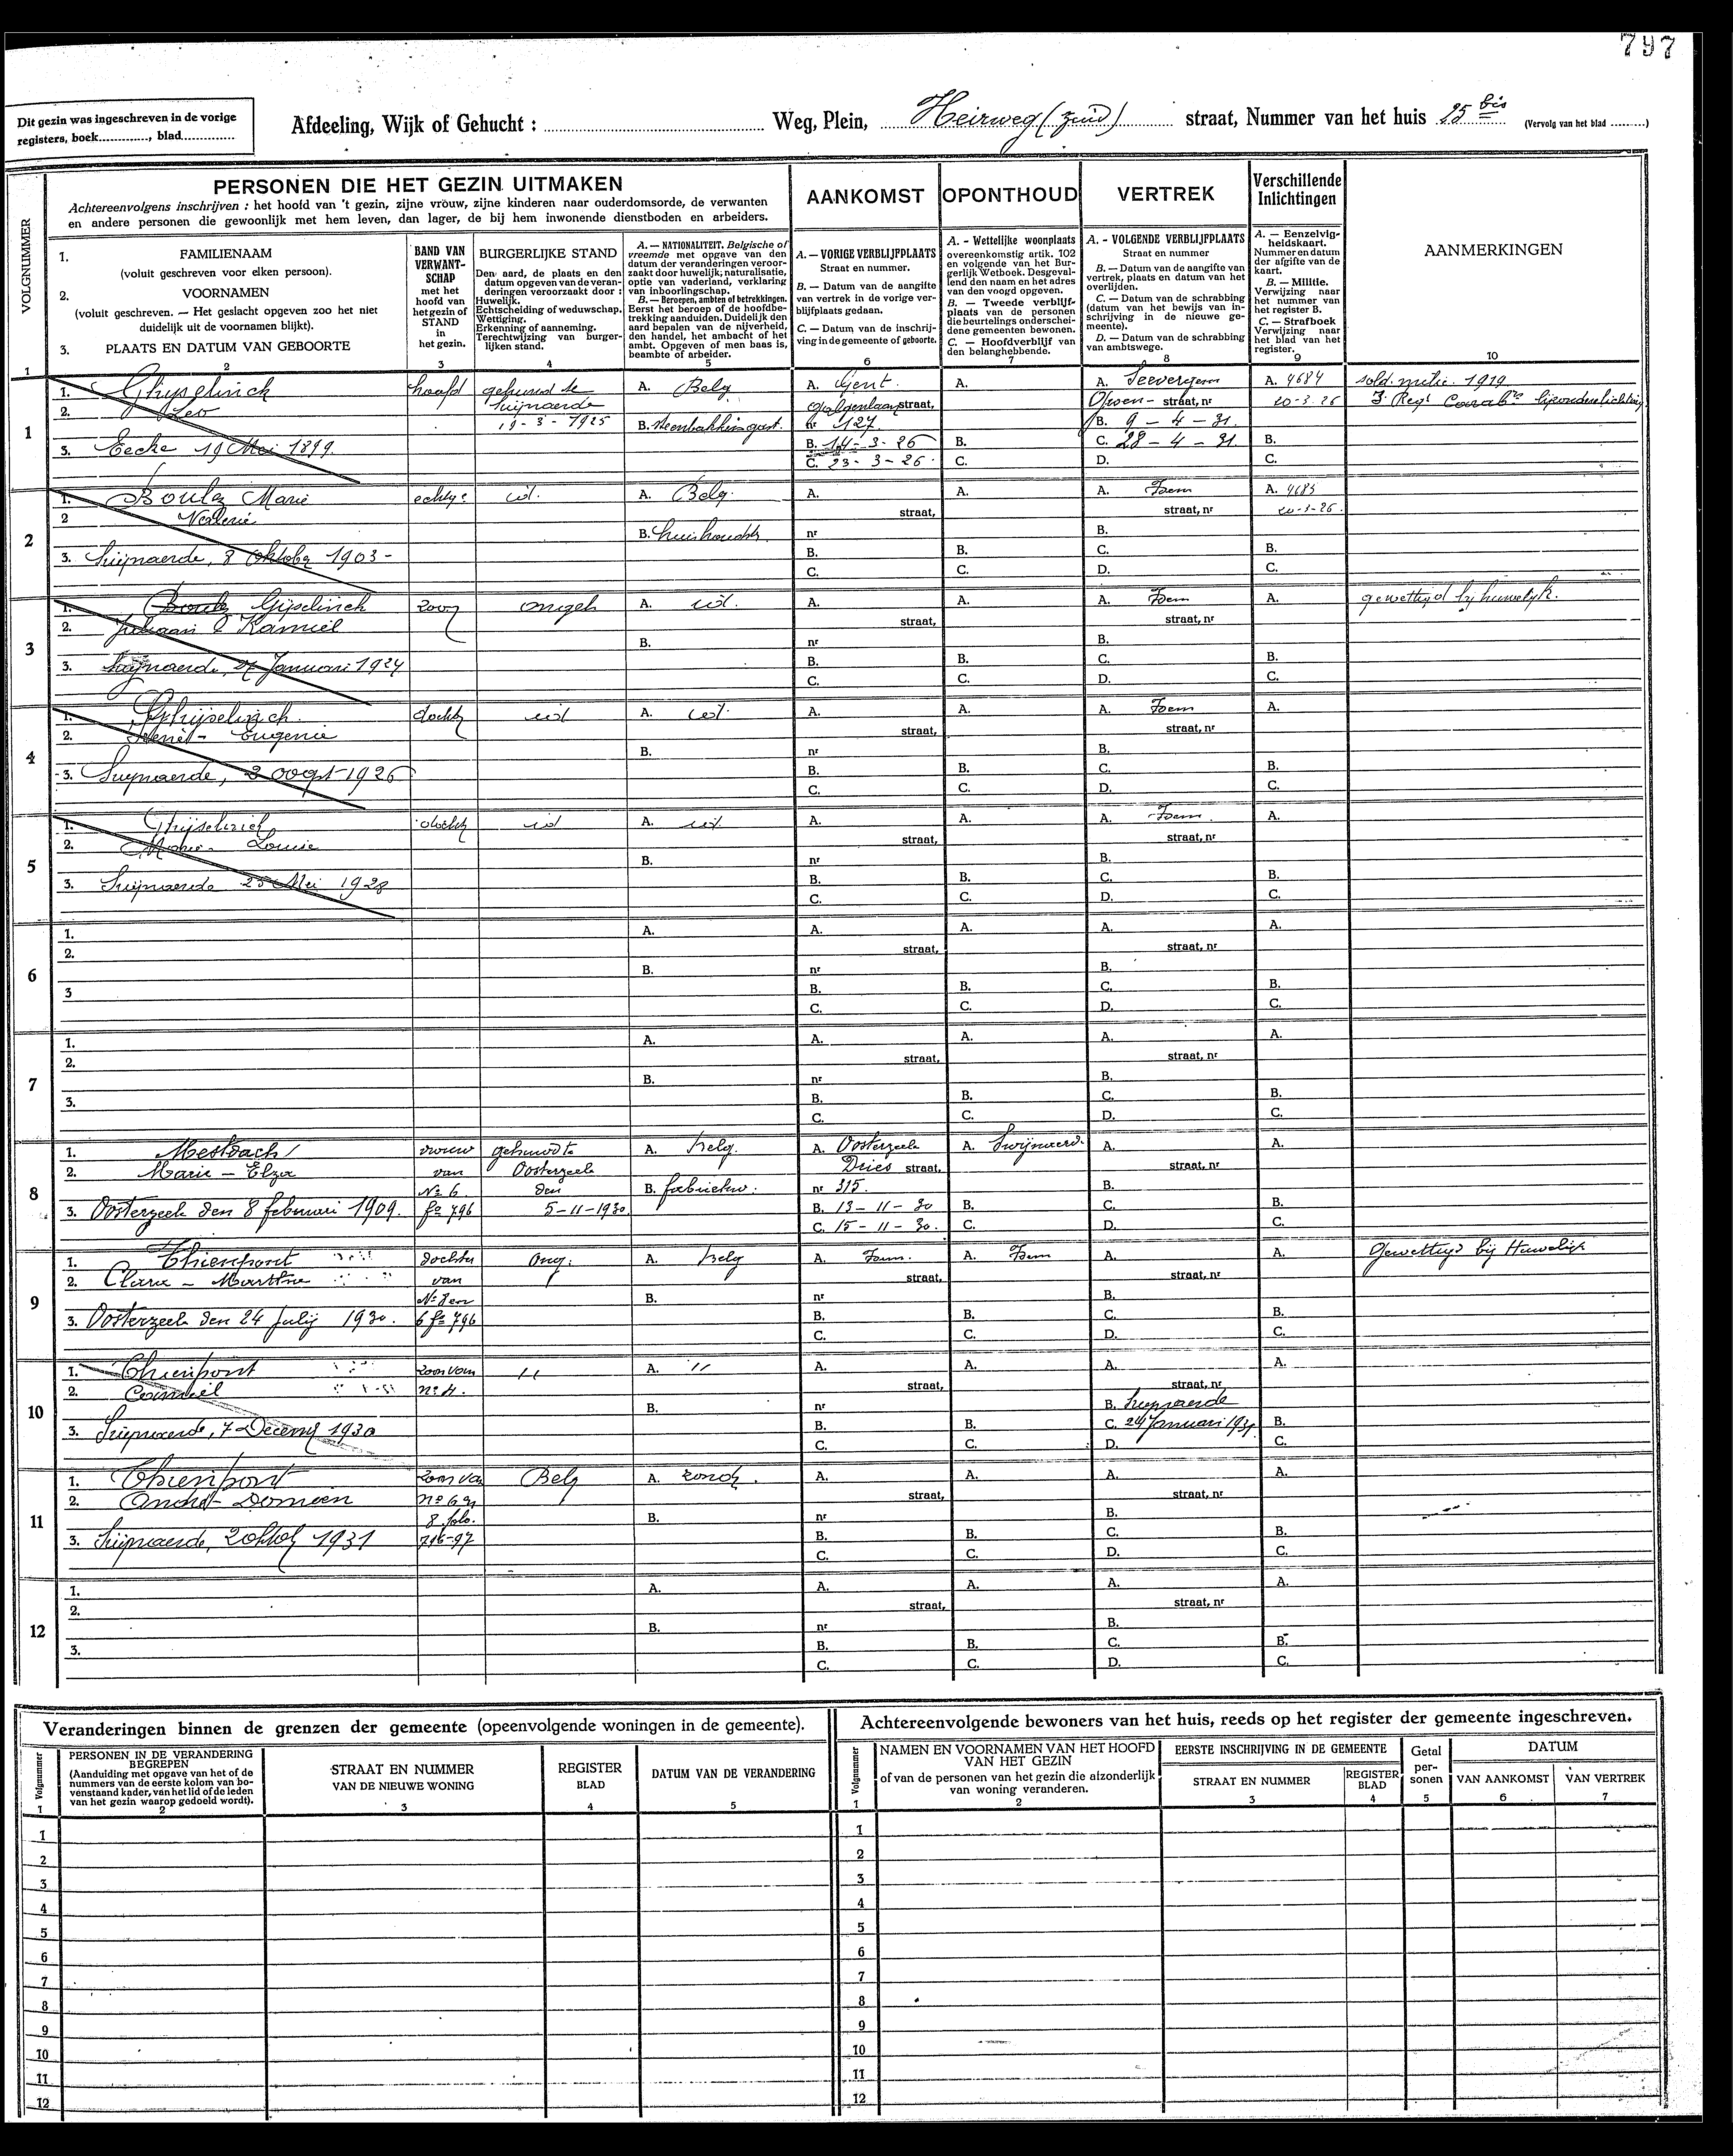 797
Dit gezin was ingeschreven in de vorige
registers, boek............, blad............
Afdeeling, Wijk of Gehucht : ............ Weg, Plein, Heirweg (zuid) straat, Nummer van het huis 25 bis (Vervolg van het blad ..........)
VOLGNUMMER
PERSONEN DIE HET GEZIN UITMAKEN
Achtereenvolgens inschrijven : het hoofd van 't gezin, zijne vrouw, zijne kinderen naar ouderdomsorde, de verwanten
en andere personen die gewoonlijk met hem leven, dan lager, de bij hem inwonende dienstboden en arbeiders.
AANKOMST
OPONTHOUD
VERTREK
Verschillende
Inlichtingen
AANMERKINGEN
1. FAMILIENAAM
(voluit geschreven voor elken persoon).
2. VOORNAMEN
(voluit geschreven. — Het geslacht opgeven zoo het niet
duidelijk uit de voornamen blijkt).
3. PLAATS EN DATUM VAN GEBOORTE
BAND VAN
VERWANT-
SCHAP
met het
hoofd van
het gezin of
STAND
in
het gezin.
BURGERLIJKE STAND
Den aard, de plaats en den
datum opgeven van de veran-
deringen veroorzaakt door :
Huwelijk.
Echtscheiding of weduwschap.
Wettiging.
Erkenning of aanneming.
Terechtwijzing van burger-
lijken stand.
A. — NATIONALITEIT. Belgische of
vreemde met opgave van den
datum der veranderingen veroor-
zaakt door huwelijk; naturalisatie,
optie van vaderland, verklaring
van inboorlingschap.
B. — Beroepen, ambten of betrekkingen.
Eerst het beroep of de hoofdbe-
trekking aanduiden. Duidelijk den
aard bepalen van de nijverheid,
den handel, het ambacht of het
ambt. Opgeven of men baas is,
beambte of arbeider.
A. — VORIGE VERBLIJFPLAATS
Straat en nummer.
B. — Datum van de aangifte
van vertrek in de vorige ver-
blijfplaats gedaan.
C. — Datum van de inschrij-
ving in de gemeente of geboorte.
A. - Wettelijke woonplaats
overeenkomstig artik. 102
en volgende van het Bur-
gerlijk Wetboek. Desgeval-
lend den naam en het adres
van den voogd opgeven.
B. — Tweede verblijf-
plaats van de personen
die beurtelings onderschei-
dene gemeenten bewonen.
C. — Hoofdverblijf van
den belanghebbende.
A. - VOLGENDE VERBLIJFPLAATS
Straat en nummer
B. — Datum van de aangifte van
vertrek, plaats en datum van het
overlijden.
C. — Datum van de schrabbing
(datum van het bewijs van in-
schrijving in de nieuwe ge-
meente).
D. — Datum van de schrabbing
van ambtswege.
A. — Eenzelvig-
heidskaart.
Nummer en datum
der afgifte van de
kaart.
B. — Militie.
Verwijzing naar
het nummer van
het register B.
C. — Strafboek
Verwijzing naar
het blad van het
register.
1 2 3 4 5 6 7 8 9 10
1
1. Ghyselinck hoofd gehuwd te A. Belg A. Gent. A. A. Seevergem A. 4684 sold. milic. 1919
2. Leo Suijnaerde Galgenlaan straat, straat, nr 20-3-26
19-3-1925 B. Steenbakkersgast. nr 127 B. 9-4-31.
3. Eecke 19 Mei 1899. B. 14-3-26 B. C. 28-4-31. B.
C. 23-3-26. C. D. C.
2
1. Boulez Marie echtge id. A. Belg. A. A. A. Idem A. 4685
2 Valerie straat, straat, nr 20-3-26.
B. huishoudster nr B.
3. Suijnaerde, 8 Oktober 1903- B. B. C. B.
C. C. D. C.
3
1. Boulez Gijselinck zoon ongeh A. id. A. A. A. Idem A. gewettigd bij huwelijk.
2. Juliaan Kamiel straat, straat, nr
B. nr B.
3. Suijnaerde, 27 Januari 1924 B. B. C. B.
C. C. D. C.
4
1. Ghijselinck. dochter id A. id. A. A. A. Idem A.
2. Eugenie straat, straat, nr
B. nr B.
3. Suijnaerde, 2 oogst 1926 B. B. C. B.
C. C. D. C.
5
1. Ghijselinck dochter id A. id. A. A. A. Idem. A.
2. Maria Louise straat, straat, nr
B. nr B.
3. Suijnaerde 25 Mei 1928 B. B. C. B.
C. C. D. C.
6
1. A. A. A. A. A.
2. straat, straat, nr
B. nr B.
3 B. B. C. B.
C. C. D. C.
7
1. A. A. A. A. A.
2. straat, straat, nr
B. nr B.
3. B. B. C. B.
C. C. D. C.
8
1. Mestdach vrouw gehuwd te A. belg. A. Oosterzeele A. Swijnaerde A. A.
2. Marie - Elza van Oosterzeele Dries straat, straat, nr
No 6 den B. fabriekw. nr 315. B.
3. Oosterzeele den 8 februari 1909. fo 796 5-11-1930. B. 13-11-30 B. C. B.
C. 15-11-30. C. D. C.
9
1. Thienpont dochter ong. A. belg A. Idem. A. Idem A. A. Gewettigd bij Huwelijk
2. Clara - Martha van straat, straat, nr
No 8 en B. nr B.
3. Oosterzeele den 24 Julij 1930. 6 fo 796 B. B. C. B.
C. C. D. C.
10
1. Thienpont zoon van 11 A. 11 A. A. A. A.
2. Camiel no 4. straat, straat, nr
B. nr B. Suijnaerde
3. Suijnaerde, 7 Decemb 1930 B. B. C. 24 Januari 1931 B.
C. C. D. C.
11
1. Thienpont zoon van Belg A. zonder. A. A. A. A.
2. André - Domien no 6 en straat, straat, nr
8 folo. B. nr B.
3. Suijnaerde, 2 Oktob 1931 796-97 B. B. C. B.
C. C. D. C.
12
1. A. A. A. A. A.
2. straat, straat, nr
B. nr B.
3. B. B. C. B.
C. C. D. C.
Veranderingen binnen de grenzen der gemeente (opeenvolgende woningen in de gemeente).
Volgnummer
PERSONEN IN DE VERANDERING
BEGREPEN
(Aanduiding met opgave van het of de
nummers van de eerste kolom van bo-
venstaand kader, van het lid of de leden
van het gezin waarop gedoeld wordt).
STRAAT EN NUMMER
VAN DE NIEUWE WONING
REGISTER
BLAD
DATUM VAN DE VERANDERING
1 2 3 4 5
1
2
3
4
5
6
7
8
9
10
11
12
Achtereenvolgende bewoners van het huis, reeds op het register der gemeente ingeschreven.
Volgnummer
NAMEN EN VOORNAMEN VAN HET HOOFD
VAN HET GEZIN
of van de personen van het gezin die afzonderlijk
van woning veranderen.
EERSTE INSCHRIJVING IN DE GEMEENTE
STRAAT EN NUMMER
REGISTER
BLAD
Getal
per-
sonen
DATUM
VAN AANKOMST
VAN VERTREK
1 2 3 4 5 6 7
1
2
3
4
5
6
7
8
9
10
11
12